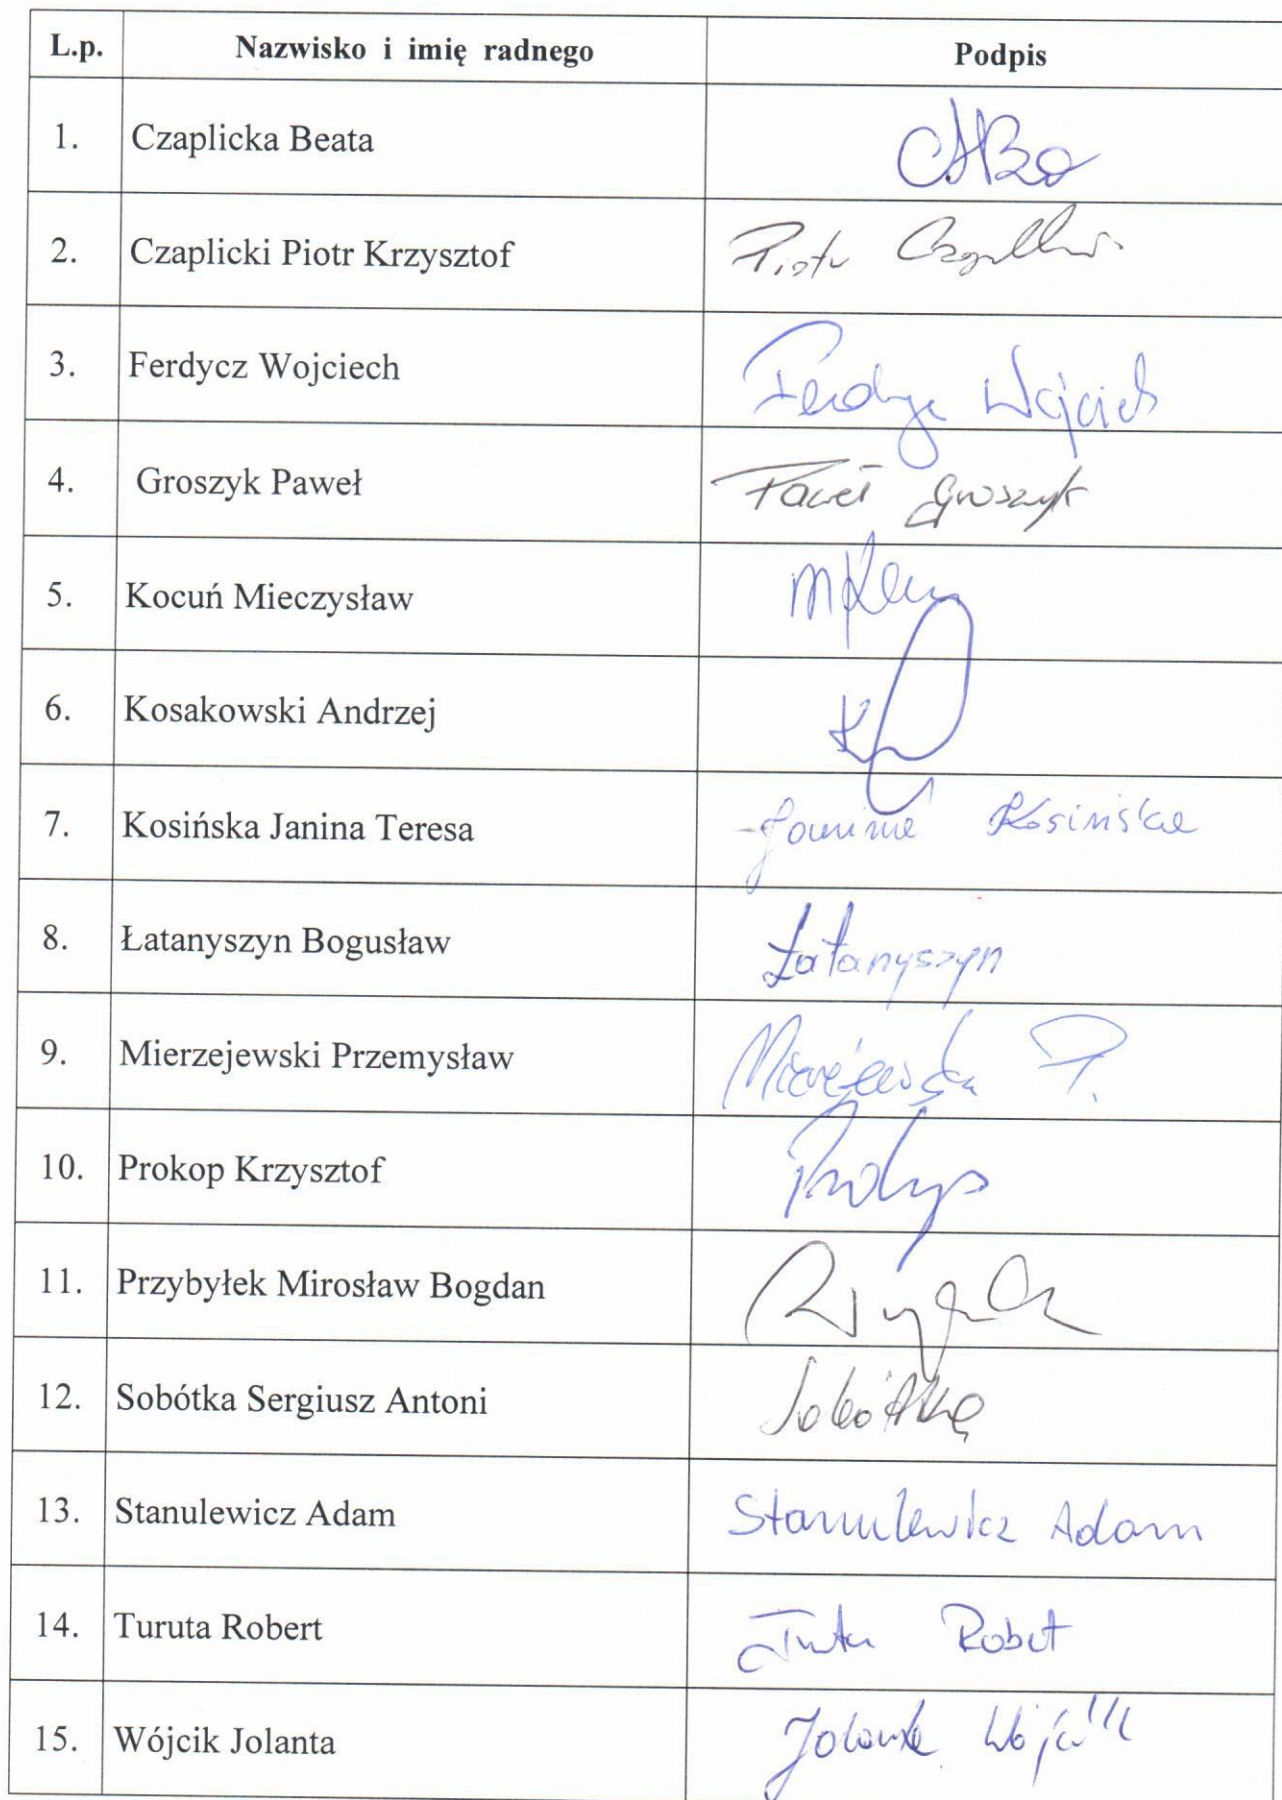 L.p. Nazwisko i imię radnego Podpis
1. Czaplicka Beata
2. Czaplicki Piotr Krzysztof Piotr
3. Ferdycz Wojciech Ferdycz Wojciech
4. Groszyk Paweł Paweł Groszyk
5. Kocuń Mieczysław
6. Kosakowski Andrzej
7. Kosińska Janina Teresa Janina Kosińska
8. Łatanyszyn Bogusław Łatanyszyn
9. Mierzejewski Przemysław P.
10. Prokop Krzysztof Prokop
11. Przybyłek Mirosław Bogdan
12. Sobótka Sergiusz Antoni Sobótka
13. Stanulewicz Adam Stanulewicz Adam
14. Turuta Robert Robert
15. Wójcik Jolanta Jolanta Wójcik